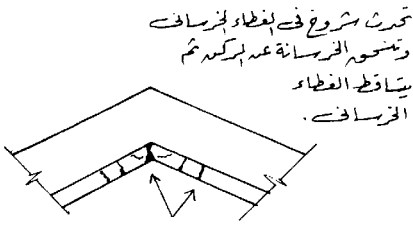 تحدث شروخ فى الغطاء الخرسانى
الخرسانة عن الركن ثم
يتساقط الغطاء
الخرسانى .